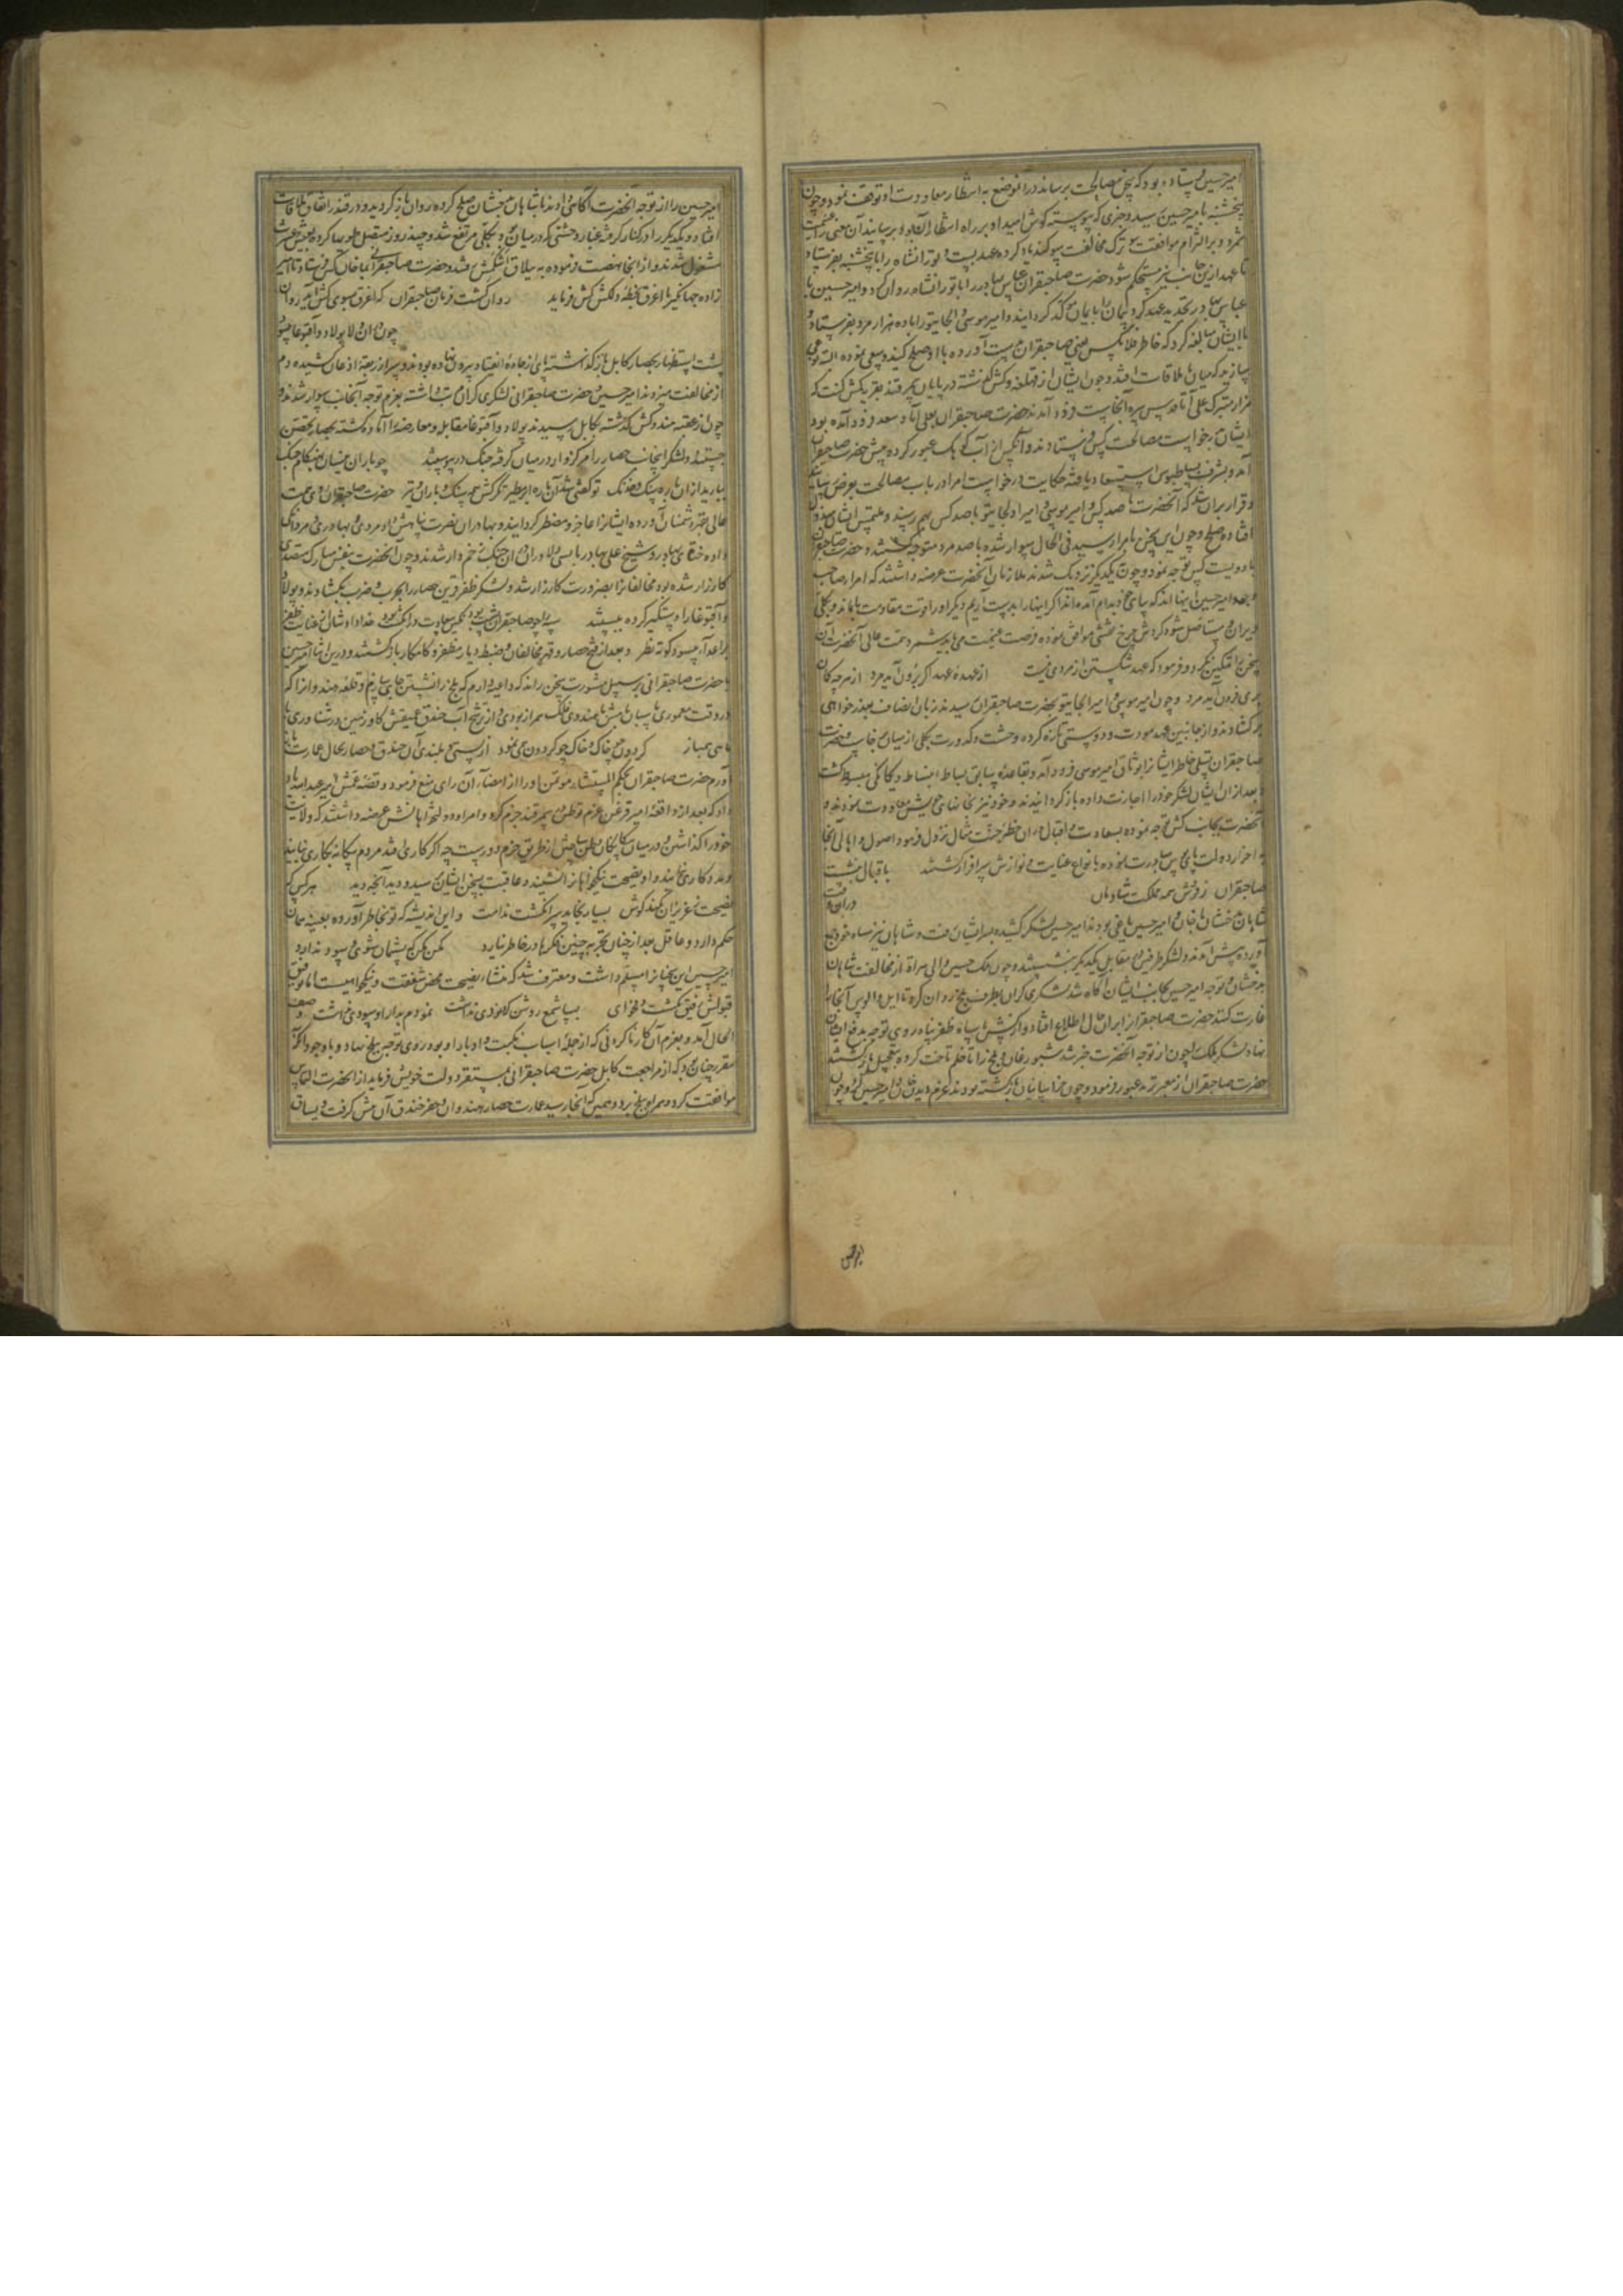 امیر حسین فرستاده بود که سخن مصالحت برساند در آن موضع به انتظار معاودت او توقف نمود و چون
پنجشنبه با میر حسین رسید و خبری که پیوسته گوش امید او بر راه انتظار آن بود برسانید آن معنی را غنیمت
شمرد و بر التزام موافقت و ترک مخالفت سوگند یاد کرده عهد بست و تورانشاه را با پنجشنبه بفرستاد
تا عهد ازین جانب نیز مستحکم شود حضرت صاحبقران عباس بهادر را با تورانشاه روان کرد و امیر حسین با
عباس بهادر تجدید عهد کرد و پیمان را بایمان موکد گردانید و امیر موسی و الجایتو را با ده هزار مرد بفرستاد و
با ایشان مبالغه کرد که خاطر
سازید که میان ما ملاقات افتد و چون ایشان از قهلغه و کش گذشته در پایان سمرقند بقریه کش کنت که
مزار متبرک علی اتا آنجاست فرود آمدند حضرت صاحبقران بعلی آباد سغد فرود آمده بود
ایشان بدرخواست مصالحت کس فرستادند و آنکس از آب کوهک عبور کرده پیش حضرت صاحبقران
آمد و بشرف بساطبوس استسعاد یافته حکایت درخواست امرا در باب مصالحت بعرض رسانید
و قرار بران شد که آنحضرت با صد کس و امیر موسی و امیر اولجایتو با صد کس بهم رسند و ملتمس ایشان مبذول
افتاده صلح و چون این سخن بامرا رسید فی الحال سوار شده با صد مرد متوجه گشتند و حضرت صاحبقران
با دویست کس توجه نمود و چون بیکدیگر نزدیک شدند ملازمان آنحضرت عرضه داشتند که امرا صاحب
وجود امیر حسین اینها اند که بپای خود بدام آمده‌اند اگر اینها را بدست آریم دیگر او را قوت مقاومت با ما نماند و بکلی
ویران و مستاصل شود گردش چرخ نقشی موافق نموده فرصت غنیمت می‌باید شمرد همت عالی آنحضرت آن
سخن را تمکین نکرد و فرمود که عهد شکستن از مردی نیست از عهدهٔ عهد اگر برون آید مرد از هرچه گمان
بری فزون آید مرد و چون امیر موسی و امیر الجایتو بحضرت صاحبقران رسیدند زبان انصاف بعذرخواهی
برگشادند و از جانبین عهد مودت و دوستی تازه کرده وحشت و کدورت بکلی از میان برخاست و حضرت
صاحبقران تسلی خاطر ایشان را بوثاق امیر موسی فرود آمد و بقاعدهٔ سابق بساط انبساط و یگانگی مبسوط گشت
و بعد از آن ایشان لشکر خود را اجازت داده بازگردانیدند و خود نیز بخانهای خویش معاودت نمودند و
آنحضرت بجانب کش توجه نموده بسعادت و اقبال در آن خطهٔ جنت مثال نزول فرمود اصول و اهالی آنجا
باحراز دولت پای بوس مبادرت نموده بانواع عنایت و نوازش سرافراز گشتند باقبال بنشست
صاحبقران ز فرّش همه مملکت شادمان در ان وقت
شاهان بدخشان با خان و امیر حسین یاغی بودند امیر حسین لشکر کشیده بسر ایشان رفت و شاهان نیز سپاه خود جمع
آورده پیش آمدند و لشکر طرفین در مقابل یکدیگر بنشستند و چون ملک حسین والی هراة از مخالفت شاهان
بدخشان و توجه امیر حسین بجانب ایشان آگاه شد لشکری گران بطرف بلخ روان کرد تا ایل و الوس آنجا را
غارت کنند حضرت صاحبقران را بر آن حال اطلاع افتاد و از کش با سپاه ظفر پناه روی توجه بدفع ایشان
نهاد لشکر ملک چون از توجه آنحضرت خبر شد شبورغان و بلخ را تا خلم تاخت کرده بتعجیل بازگشتند
حضرت صاحبقران از معبر ترمد عبور فرمود و چون خراسانیان بازگشته بودند عزم دیدن خان و امیر حسین کرد چون
امیر حسین را از توجه آنحضرت آگاهی دادند با شاهان بدخشان صلح کرده روان بازگردید و در قندز اتفاق ملاقات
افتاد و یکدیگر را در کنار گرفته غبار وحشتی که در میان بود بکلی مرتفع شد و چند روز متصل طوی‌ها کرده بعیش و عشرت
مشغول شدند و از آنجا نهضت فرموده به ییلاق اشکمش رفتند و حضرت صاحبقرانی آنجا کس فرستاد تا امیر
زاده جهانگیر با اغرق بخطهٔ دلکش کش فرماید روان گشت فرمان صاحبقران که اغرق سوی کش آید روان
چون در ان ولا پولاد و آقبوغا
پشت استظهار بحصار کابل بازگذاشته پای از جادهٔ انقیاد بیرون نهاده بودند و سر از ربقهٔ اذعان کشیده دم
از مخالفت میزدند امیر حسین و حضرت صاحبقرانی لشکری گران مرتب داشته بعزم توجه آنجانب سوار شدند و
چون از عقبهٔ هندوکش گذشته بکابل رسیدند پولاد و آقبوغا مقابل و معارضه را آماده گشته بحصار تحصن
جستند و لشکر ایجانب حصار را مرکزوار در میان گرفته جنگ درپیوستند چو باران نیسان بهنگام جنگ
ببارید از ان باره سنگ و خدنگ تو گفتی شد آن باره ابر مطیر تگرگش همه سنگ و باران تیر حضرت صاحبقران روی همت
عالی بقهر دشمنان آورده ایشان را عاجز و مضطر گردانید و بهادران نصرت پناهش داد مردی و بهادری و مردانگی
داده ختای بهادر و شیخ علی بهادر با بسی دلاوران در ان جنگ زخم‌دار شدند و چون آنحضرت بنفس مبارک متصدی
کارزار شده بود مخالفان را بضرورت کار زار شد و لشکر ظفر قرین حصار را بحرب و ضرب بگشادند و پولاد
و آقبوغا را دستگیر کرده ببستند
براعدا آرد سود کوته نظر و بعد از فتح حصار و قهر مخالفان و ضبط دیار مظفر و کامکار بازگشتند و درین اثنا امیر حسین
با حضرت صاحبقرانی بر سبیل مشورت سخن راند که داعیه دارم که بلخ را نشستن جای سازیم و قلعهٔ هندوان را که
در وقت معموری پاسبان بامش با هندوی فلک همراز بودی و از ترشح آب خندق عمیقش گاو زمین در شناوری با
ماهی همباز گردون چو خاک و خاک چو گردون همی نمود از پستی و بلندی آن خندق و حصار بحال عمارت باز
آورم حضرت صاحبقران بحکم المستشار مؤتمن او را از امضاء آن رای منع فرمود و قصهٔ عمّش امیر عبدالله یاد
داد که بعد از واقعهٔ امیر قزغن عزم توطن سمرقند جزم کرد و امرا و دولتخواهانش عرضه داشتند که ولایت
خود را گذاشتن و در میان بیگانگان وطن ساختن از طریق حزم دورست چه اگر کاری افتد مردم بیگانه بکاری نیایند
و مددکاری نمایند و او نصیحت نیکخواهان را نشنید و عاقبت بسخن ایشان رسید و دید آنچه دید هر کس که
نصیحت ز عزیزان نکند گوش بسیار بخاید سر انگشت ندامت و این اندیشه که تو بخاطر آورده بعینه همان
حکم دارد و عاقل بعد از چنان تجربه چنین فکرها در خاطر نیارد مکن مکن که پشیمان شوی و سود ندارد
امیر حسین این سخنان را مسلم داشت و معترف شد که منشاء نصیحت محض شفقت و نیکخواهیست اما توفیق
قبولش رفیق نگشت و فحوای بسا شمع روشن که دودی نداشت نمودم بدار او سودی نداشت وصف
الحال آمد و بعزم آن کار ناکردنی که از جملهٔ اسباب نکبت و ادبار او بود روی توجه ببلخ نهاد و با وجود آنکه
مقرر چنان بود که از مراجعت کابل حضرت صاحبقرانی بمستقر دولت خویش فرماید از آنحضرت التماس
موافقت کرد و همراه ببلخ برد و همین که آنجا رسید عمارت حصار هندوان و حفر خندق آن پیش گرفت و یساق